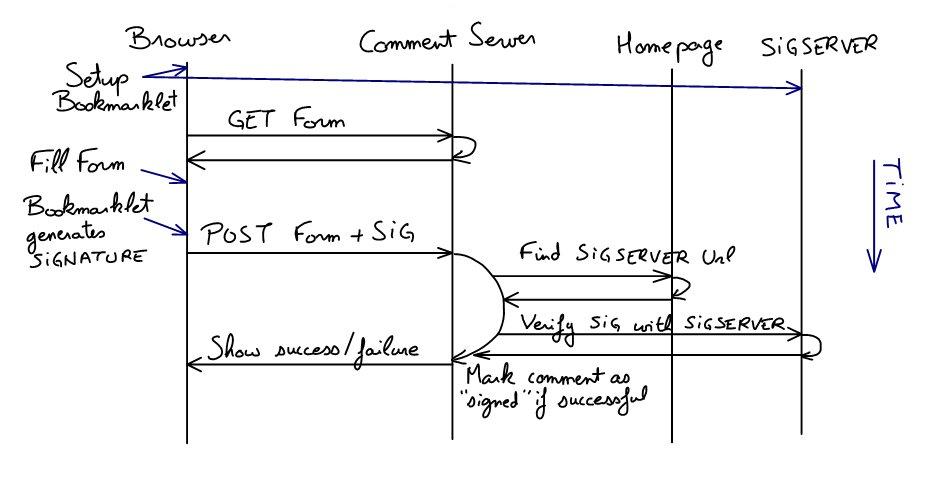 Browser
Comment Server
Homepage
SiGSERVER
Setup
Bookmarklet
GET Form
Fill Form
Bookmarklet
generates
SiGNATURE
POST Form + SiG
Find SiGSERVER Url
Verify SiG with SiGSERVER
Show success/failure
Mark comment as
"signed" if successful
TiME